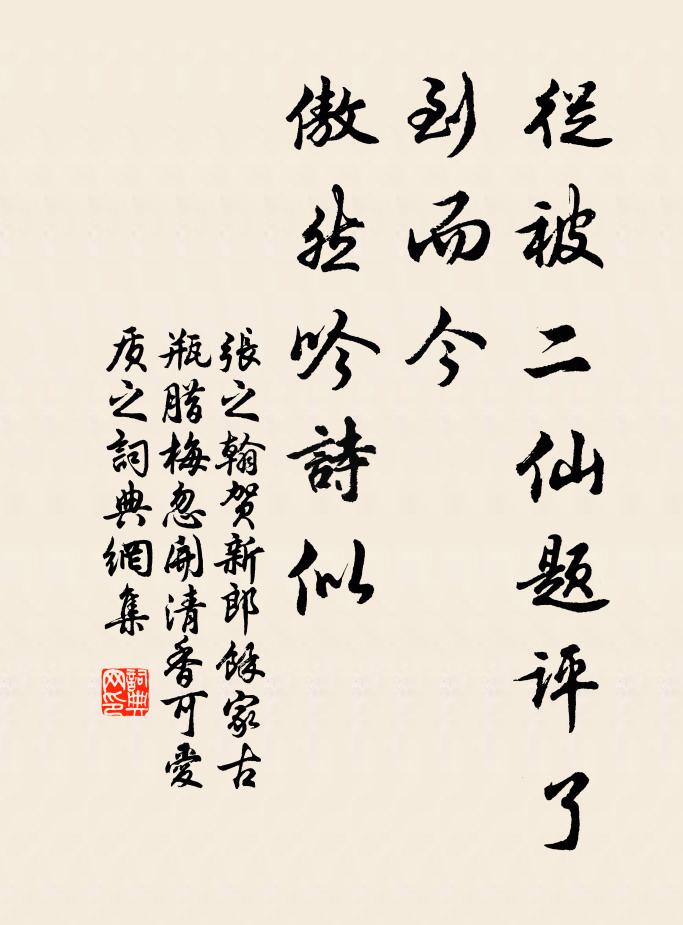 從被二仙题评了
到而今
傲然吟詩似
張之翰贺新郎餘家古
瓶腊梅忽開清香可愛
质之詞典網集
詞典网印